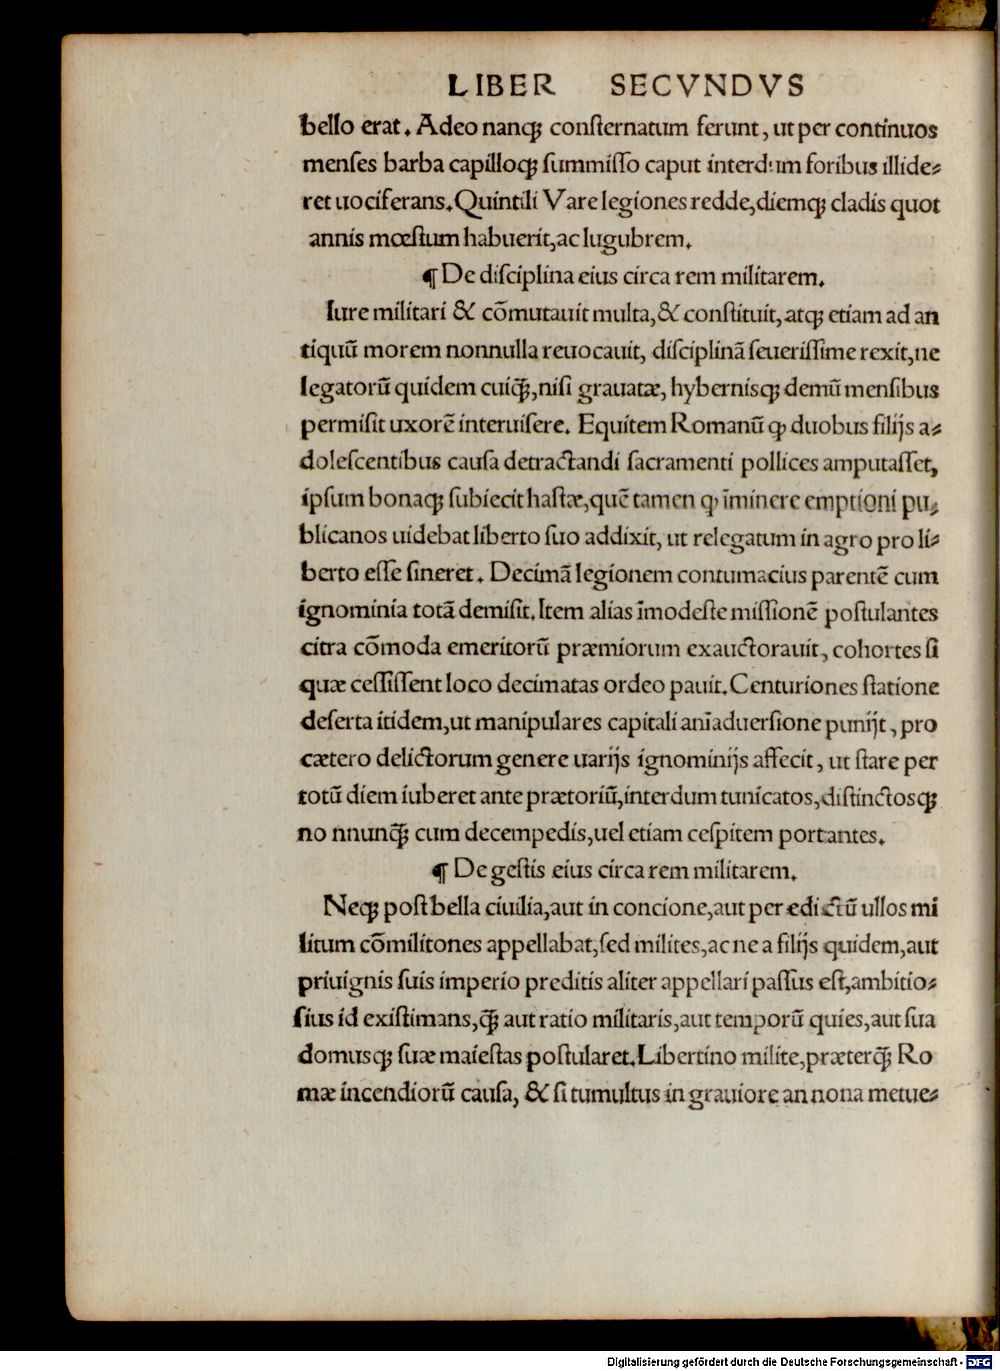 LIBER SECVNDVS
bello erat. Adeo nanqꝫ conſternatum ferunt, ut per continuos
menſes barba capilloqꝫ ſummiſſo caput interdum foribus illide⸗
ret uociferans. Quintili Vare legiones redde, diemqꝫ cladis quot
annis mœſtum habuerit, ac lugubrem.
¶ De diſciplina eius circa rem militarem.
Iure militari & cōmutauit multa, & conſtituit, atqꝫ etiam ad an
tiquū morem nonnulla reuocauit, diſciplinā ſeueriſſime rexit, ne
legatorū quidem cuiqꝫ̄, niſi grauatæ, hybernisqꝫ demū menſibus
permiſit uxorē interuiſere. Equitem Romanū ꝙ duobus filijs a⸗
doleſcentibus cauſa detractandi ſacramenti pollices amputaſſet,
ipſum bonaqꝫ ſubiecit haſtæ, quē tamen ꝙ īminere emptioni pu⸗
blicanos uidebat liberto ſuo addixit, ut relegatum in agro pro li⸗
berto eſſe ſineret. Decimā legionem contumacius parentē cum
ignominia totā demiſit. Item alias īmodeſte miſſionē poſtulantes
citra cōmoda emeritorū præmiorum exauctorauit, cohortes ſi
quæ ceſſiſſent loco decimatas ordeo pauit. Centuriones ſtatione
deſerta itidem, ut manipulares capitali anīaduerſione punijt, pro
cætero delictorum genere uarijs ignominijs affecit, ut ſtare per
totū diem iuberet ante prætoriū, interdum tunicatos, diſtinctosqꝫ
no nnunqꝫ̄ cum decempedis, uel etiam ceſpitem portantes.
¶ De geſtis eius circa rem militarem.
Neqꝫ poſt bella ciuilia, aut in concione, aut per edictū ullos mi
litum cōmilitones appellabat, ſed milites, ac ne a filijs quidem, aut
priuignis ſuis imperio preditis aliter appellari paſſus eſt, ambitio⸗
ſius id exiſtimans, qꝫ̄ aut ratio militaris, aut temporū quies, aut ſua
domusqꝫ ſuæ maieſtas poſtularet. Libertino milite, præterqꝫ̄ Ro
mæ incendiorū cauſa, & ſi tumultus in grauiore annona metue⸗
Digitalisierung gefördert durch die Deutsche Forschungsgemeinschaft - DFG